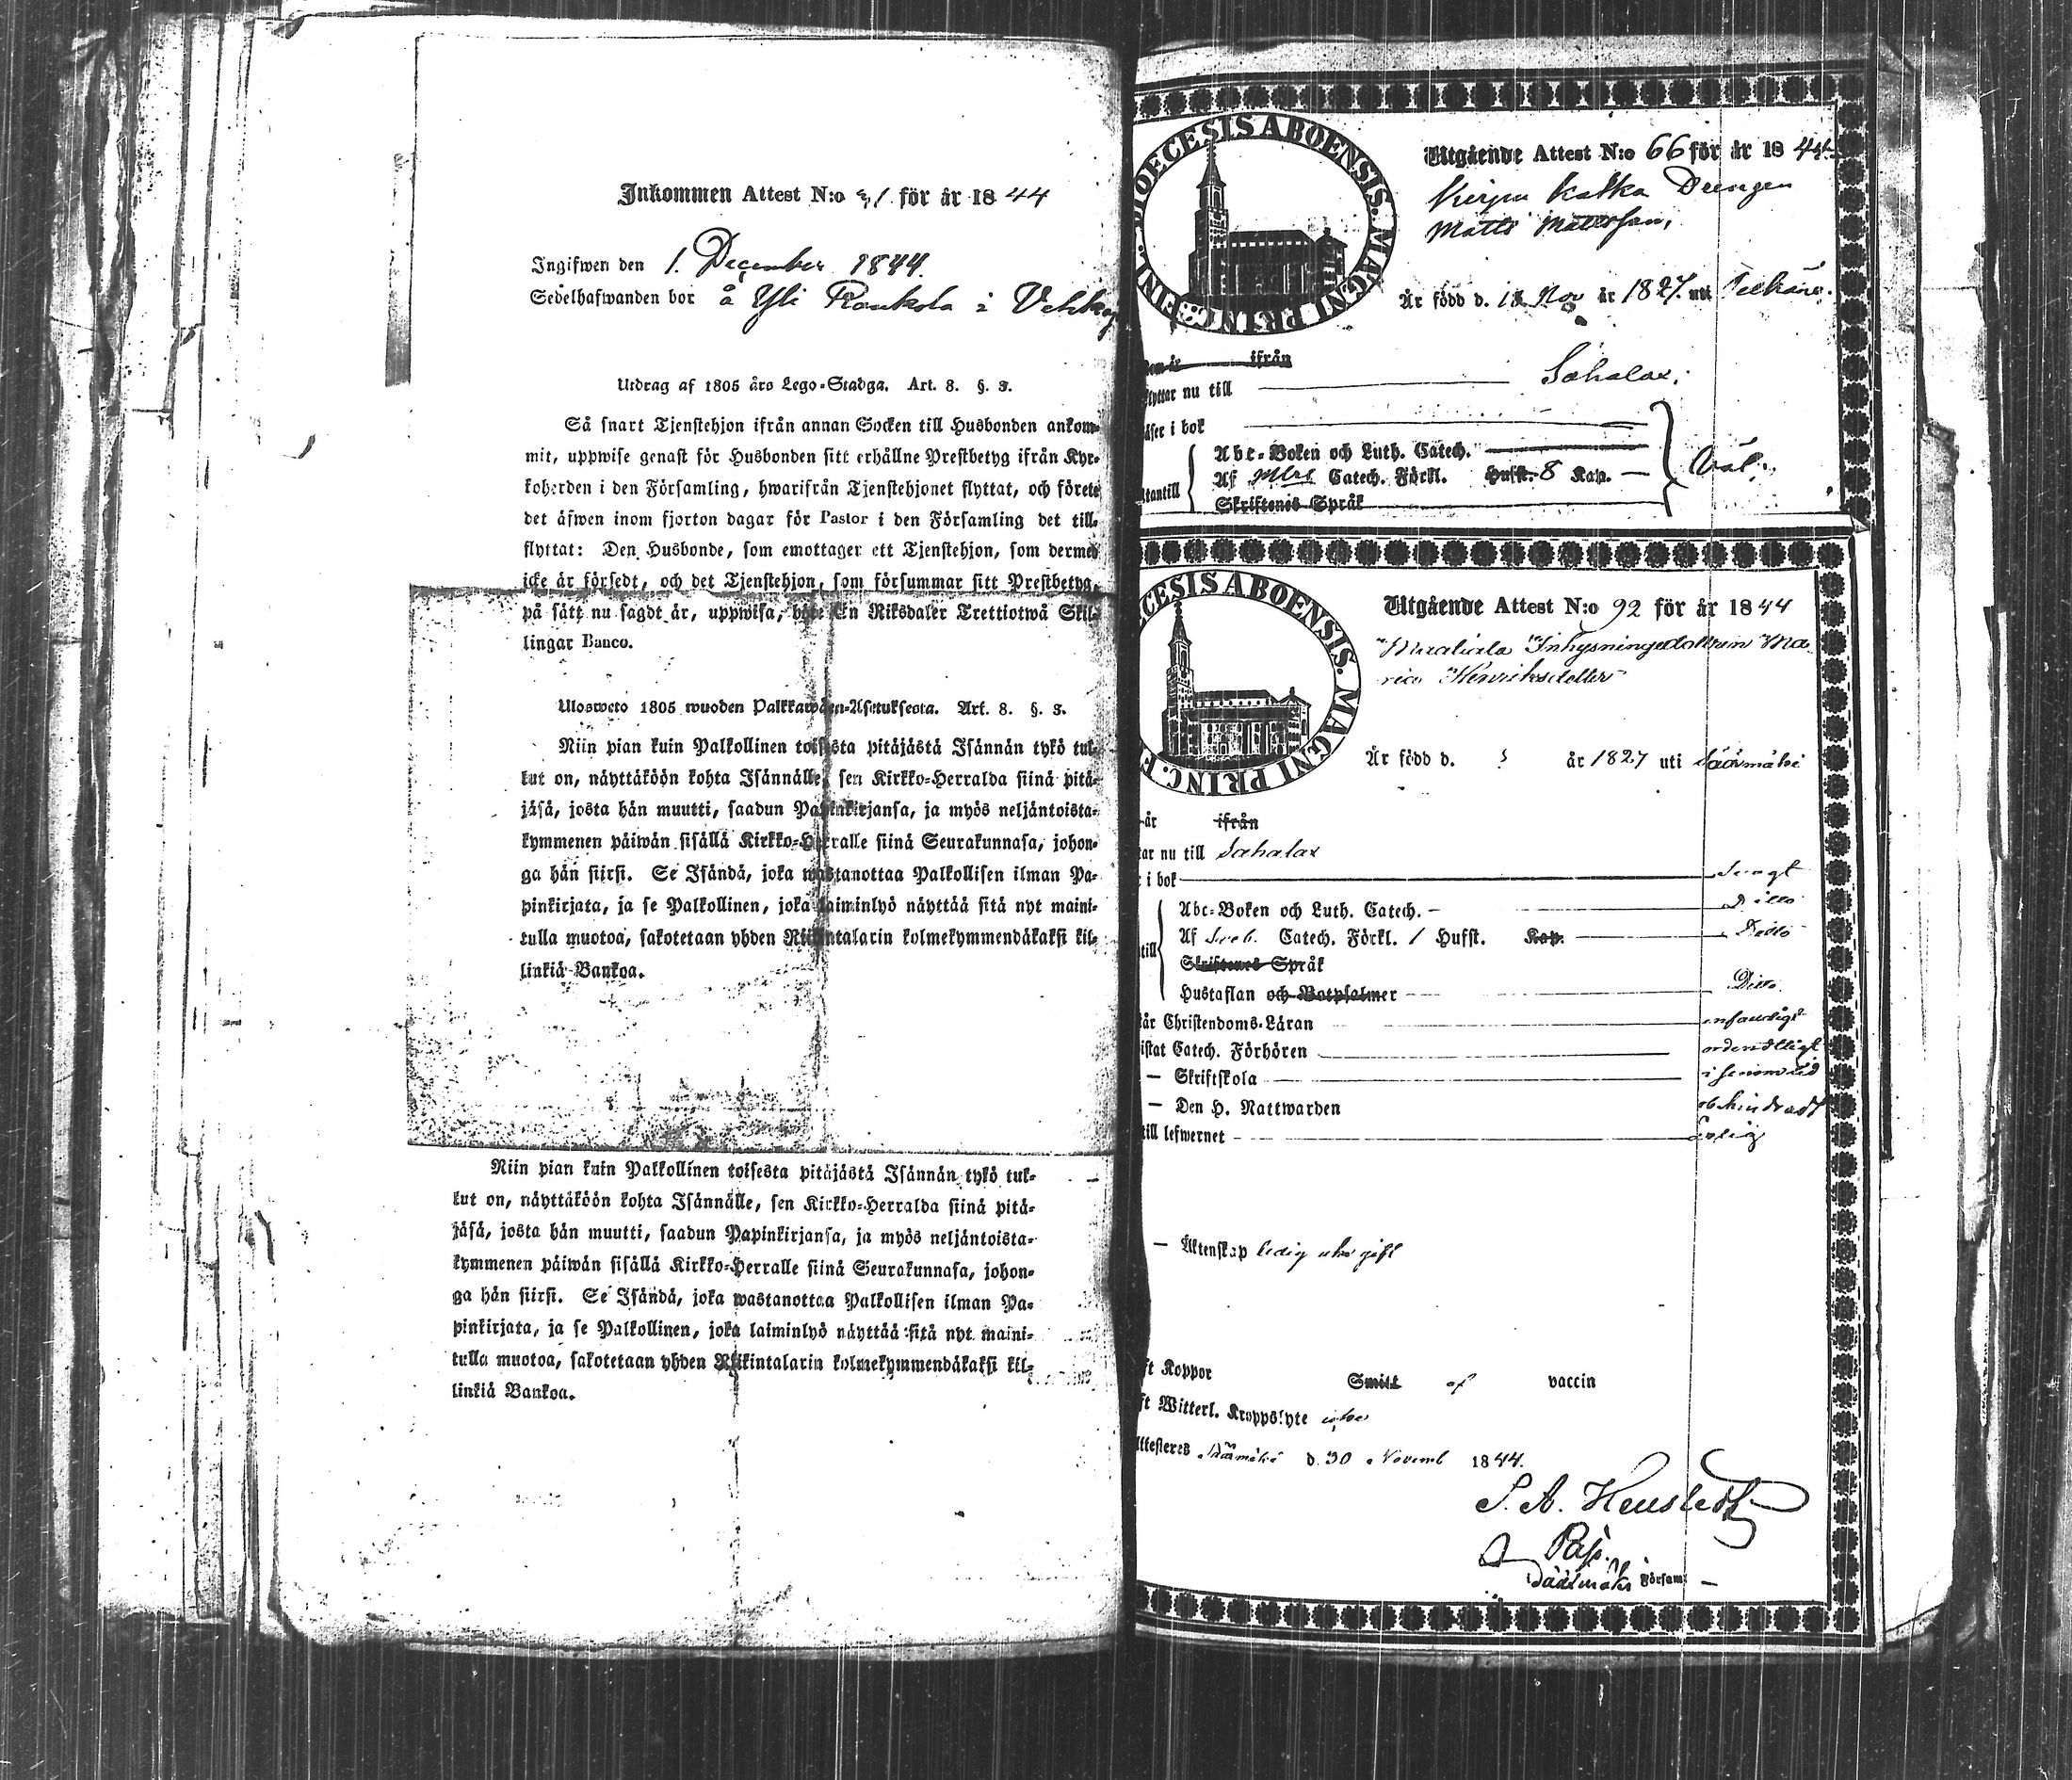 Inkommen Attest N:o 31 för år 1844
Ingifwen den 1. December 1844.
Sedelhafwanden bor å Yli Raukola i Vehka
Utdrag af 1805 års Lego-Stadga. Art. 8. §. 3.
Så snart Tjenstehjon ifrån annan Socken till Husbonden ankom-
mit, uppwise genast för Husbonden sitt erhållne Prestbetyg ifrån Kyr-
koherden i den Församling, hwarifrån Tjenstehjonet flyttat, och förete
det äfwen inom fjorton dagar för Pastor i den Församling det till-
flyttat: Den Husbonde, som emottager ett Tjenstehjon, som dermed
icke är försedt, och det Tjenstehjon, som försummar sitt Prestbetyg,
på sätt nu sagdt är, uppwisa, böte En Riksdaler Trettiotwå Skil-
lingar Banco.
Ulosweto 1805 wuoden Palkkawäen-Asetuksesta. Art. 8. §. 3.
Niin pian kuin Palkollinen toisesta pitäjästä Isännän tykö tul-
kut on, näyttäköön kohta Isännälle, sen Kirkko-Herralda siinä pitä-
jäsä, josta hän muutti, saadun Papinkirjansa, ja myös neljäntoista-
kymmenen päiwän sisällä Kirkko-Herralle siinä Seurakunnasa, johon-
ga hän siirsi. Se Isändä, joka wastanottaa Palkollisen ilman Pa-
pinkirjata, ja se Palkollinen, joka laiminlyö näyttää sitä nyt maini-
tulla muotoa, sakotetaan yhden Riikintalarin kolmekymmendäkaksi kil-
linkiä Bankoa.
Niin pian kuin Palkollinen toisesta pitäjästä Isännän tykö tul-
kut on, näyttäköön kohta Isännälle, sen Kirkko-Herralda siinä pitä-
jäsä, josta hän muutti, saadun Papinkirjansa, ja myös neljäntoista-
kymmenen päiwän sisällä Kirkko-Herralle siinä Seurakunnasa, johon-
ga hän siirsi. Se Isändä, joka wastanottaa Palkollisen ilman Pa-
pinkirjata, ja se Palkollinen, joka laiminlyö näyttää sitä nyt maini-
tulla muotoa, sakotetaan yhden Riikintalarin kolmekymmendäkaksi kil-
linkiä Bankoa.
DIOECESIS ABOENSIS. MAGNI PRINC. FINL.
Utgående Attest N:o 66 för år 1844
Drengen
Matts Mattsson,
Är född d. 18 Nov år 1827 uti
ifrån
flyttar nu till Sahalax.
läser i bok
Abc-Boken och Luth. Catech.
Utantill Af Catech. Förkl. Hufst. 8 Kap. Väl.
Skriftenes Språk
CESIS ABOENSIS. MAGNI PRINC. F
Utgående Attest N:o 92 för år 1844
Inhysningedottren Ma
ria Henriksdotter
Är född d. år 1827 uti Sääxmäki
är ifrån
tar nu till Sahalax
i bok Svagt
Abc-Boken och Luth. Catech. Ditto
till Af Sveb. Catech. Förkl. 1 Hufst. Kap. Ditto
Skriftenes Språk
Hustaflan och Botpsalmer Ditto.
tår Christendoms-Läran enfaldigt
istat Catech. Förhören ordentligt
— Skriftskola i sinom tid
— Den H. Nattwarden obehindradt
till lefwernet ärlig
— Äktenskap ledig eller gift
ft Koppor Smitt af vaccin
ft Witterl. Kroppslyte icke
Attesteres Sääxmäki d. 30 Novemb 1844.
S. A. Heustedt
Past.
i Sääxmäki Församl